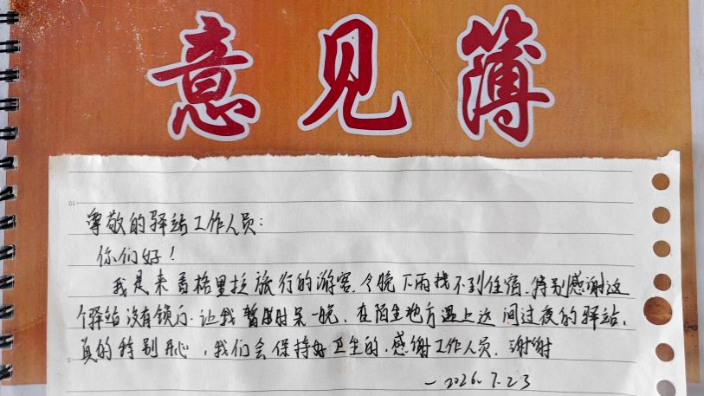 意见簿
尊敬的驿站工作人员:
你们好!
我是来香格里拉旅行的游客.今晚下雨找不到住宿.特别感谢这
个驿站没有锁门.让我暂时呆一晚.在陌生地方遇上这间过夜的驿站,
真的特别开心,我们会保持好卫生的.感谢工作人员.谢谢
—2026.7.23